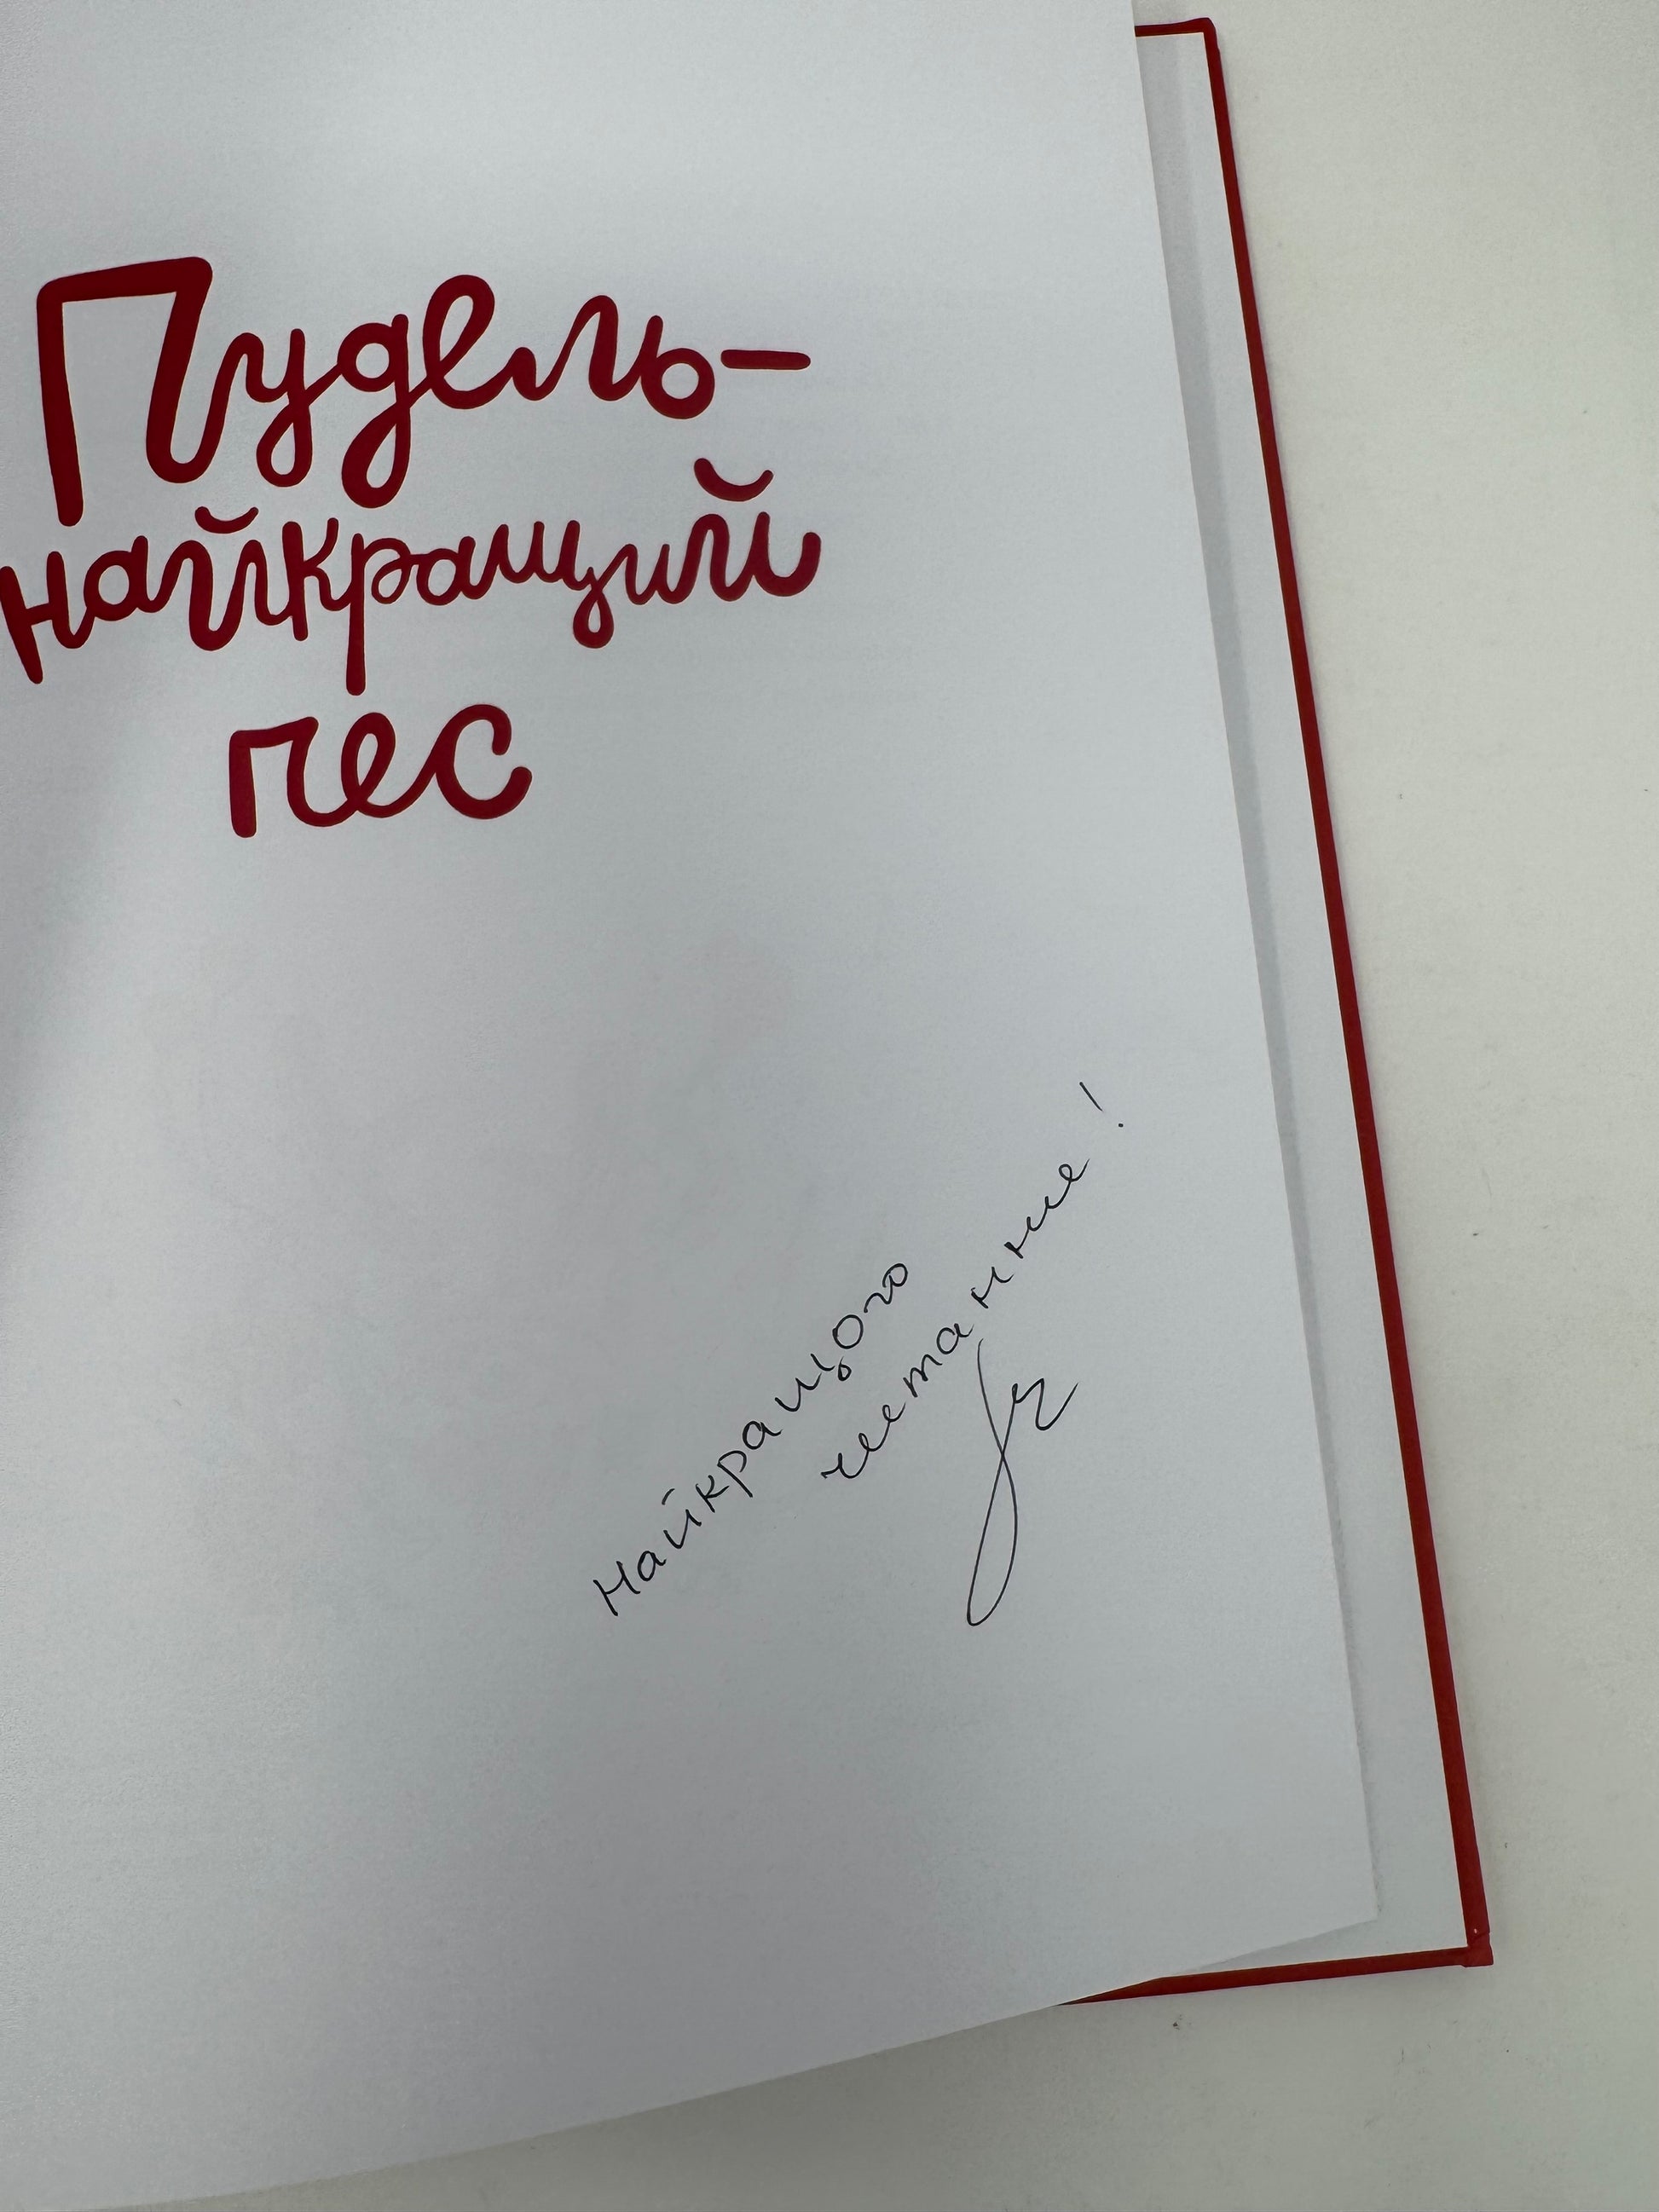 Пудель–
найкращий
пес
Найкращого
читання!